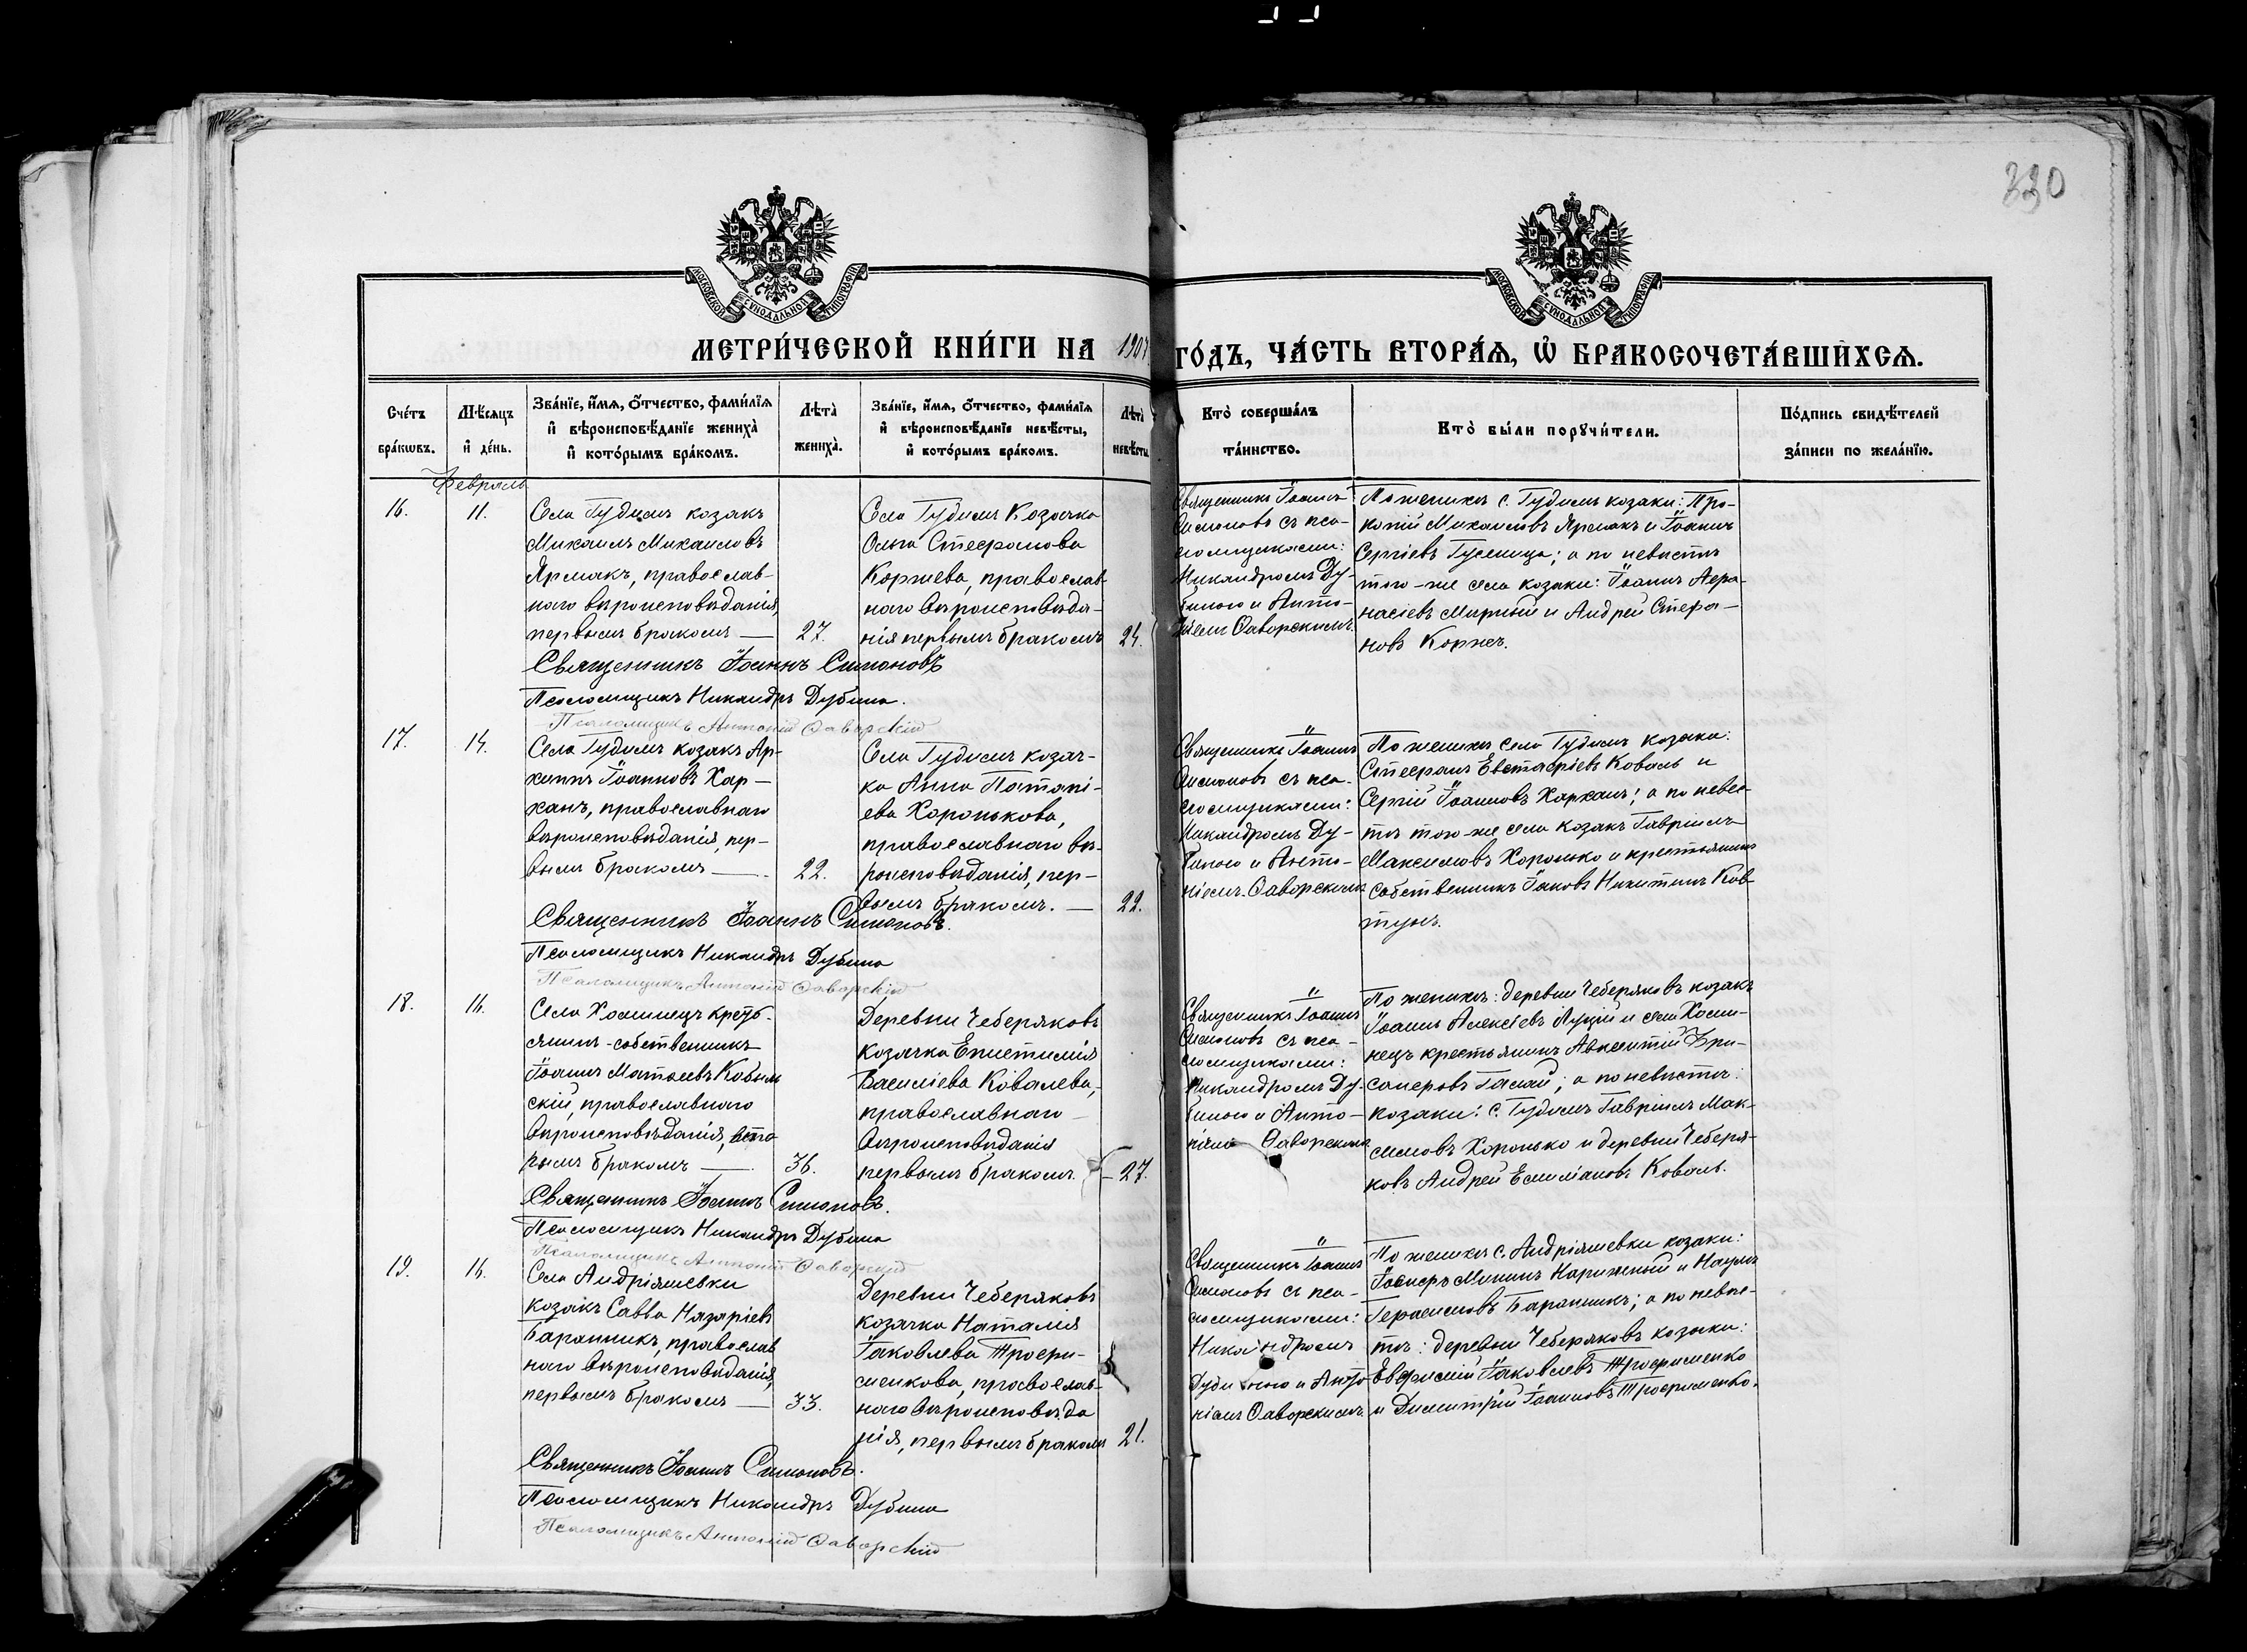 330
МОСКОВСКОЙ СѴНОДАЛЬНОЙ ТИПОГРАФІИ
МОСКОВСКОЙ СѴНОДАЛЬНОЙ ТИПОГРАФІИ
МЕТРИ́ЧЕСКОЙ КНИ́ГИ НА
ГО́ДЪ, ЧА́СТЬ ВТОРА́Ѧ, Ѽ БРАКОСОЧЕТА́ВШИХСѦ.
Сче́тъ
бра́кѡвъ.
Мѣ́сѧцъ
и҆ де́нь.
Зва́нїе, и҆́мѧ, ѻ҆́тчество, фами́лїѧ
и҆ вѣроисповѣ́данїе жениха̀
и҆ кото́рымъ бра́комъ.
Лѣта̀
жениха̀.
Зва́нїе, и҆́мѧ, ѻ҆́тчество, фами́лїѧ
и҆ вѣроисповѣ́данїе невѣ́сты,
и҆ кото́рымъ бра́комъ.
Лѣта̀
невѣ́сты
Кто̀ соверша́лъ
та́инство.
Кто̀ бы́ли порꙋчи́тели.
По́дпись свидѣ́телей
за́писи по жела́нїю.
Февраль
16.
11.
Села Гудимъ козакъ
Михаилъ Михаиловъ
Ярмакъ, православ-
наго вѣроисповѣданія,
первымъ бракомъ —
27.
Села Гудимъ Козачка
Ольга Стефанова
Корнева, православ-
наго вѣроисповѣда-
нія первымъ бракомъ
24.
Священникъ Іоаннъ
Симоновъ съ пса-
ломщиками:
Никандромъ Ду-
биною и Анто-
ніемъ Ѳаворскимъ
По женихѣ с. Гудимъ козаки: Про-
копій Михаиловъ Ярмакъ и Іоаннъ
Сергіевъ Гусеница; а по невѣстѣ
того-же села козаки: Іоаннъ Аѳа-
насіевъ Мирный и Андрей Стефа-
новъ Корнев.
Священникъ Іоаннъ Симоновъ
Псаломщикъ Никандръ Дубина.
Псаломщикъ Антоній Ѳаворскій
17.
14.
Села Гудимъ козакъ Ар-
хиппъ Іоанновъ Хар-
ханъ, православнаго
вѣроисповѣданія, пер-
вымъ бракомъ —.
22.
Села Гудимъ козач-
ка Анна Потапі-
ева Хоронькова,
православнаго вѣ-
роисповѣданія, пер-
вымъ бракомъ. —
22.
Священникъ Іоаннъ
Симоновъ съ пса-
ломщиками:
Никандромъ Ду-
биною и Анто-
ніемъ Ѳаворскимъ
По женихѣ села Гудимъ козаки:
Стефанъ Евстафіевъ Коваль и
Сергій Іоанновъ Харханъ; а по невѣс-
тѣ того-же села козакъ Гавріилъ
Максимовъ Хоронько и крестьянинъ
собственникъ Іаковъ Никитинъ Ков-
тунъ.
Священникъ Іоаннъ Симоновъ.
Псаломщикъ Никандръ Дубина
Псаломщикъ Антоній Ѳаворскій
18.
16.
Села Хоминецъ кресть-
янинъ-собственникъ
Іоаннъ Матѳеевъ Кобыл
скій, православнаго
вѣроисповѣданія, вто
рымъ бракомъ —.
36.
Деревни Чеберяковъ
козачка Епистимія
Василіева Ковалева,
православнаго
вѣроисповѣданія
первымъ бракомъ.
— 27.
Священникъ Іоаннъ
Симоновъ съ пса-
ломщиками:
Никандромъ Ду-
биною и Анто-
ніемъ Ѳаворскимъ
По женихѣ: деревни Чеберяковъ козакъ
Іоаннъ Алексіевъ Луцій и села Хоми-
нецъ крестьянинъ Авксентій
а по невѣстѣ:
козаки: с. Гудимъ Гавріилъ Мак-
симовъ Хоронько и деревни Чеберя-
ковъ Андрей Коваль.
Священникъ Іоаннъ Симоновъ.
Псаломщикъ Никандръ Дубина
Псаломщикъ Антоній Ѳаворскій
19.
16.
Села Андріяшевки
козакъ Савва Назаріевъ
Баранникъ, православ
наго вѣроисповѣданія,
первымъ бракомъ —
33.
Деревни Чеберяковъ
козачка Наталія
Іаковлева Трофи-
менкова, православ-
наго вѣроисповѣда
нія, первымъ бракомъ
21.
Священникъ Іоаннъ
Симоновъ съ пса-
ломщиками:
Никандромъ
Дубиною и Анто
ніемъ Ѳаворскимъ
По женихѣ с. Андріяшевки козаки:
Іосифъ Мининъ Нарижный и Наумъ
Герасимовъ Баранникъ; а по невѣс-
тѣ: деревни Чеберяковъ козаки:
Евфимій Іаковлевъ Трофименко
и Димитрій Іоанновъ Трофименко.
Священникъ Іоаннъ Симоновъ.
Псаломщикъ Никандръ Дубина
Псаломщикъ Антоній Ѳаворскій